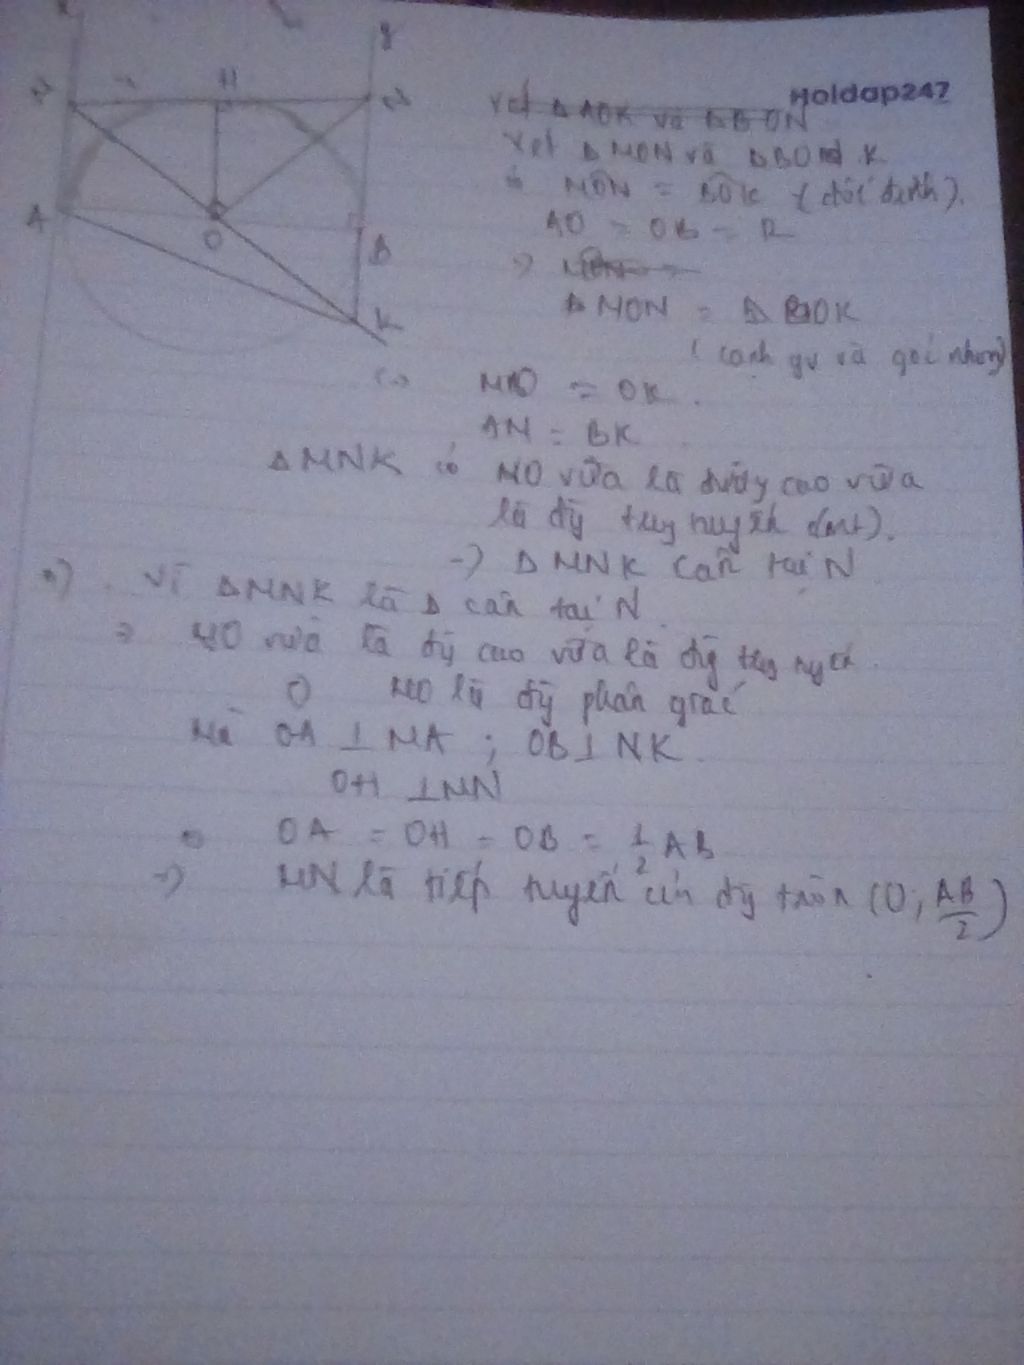 y
H
A
O
B
K
Holdap247
xét ΔAOK và ΔBON
xét ΔMON và ΔBO K
có MÔN = BÔK (đối đỉnh).
AO = OB = R
=> MÔN =
ΔMON = ΔBOK
(cạnh gv và góc nhọn)
=> MO = OK.
AN = BK
ΔMNK có NO vừa là đường cao vừa
là đg trung tuyến (cmt).
=> ΔMNK cân tại N
Vì ΔMNK là Δ cân tại N.
=> NO vừa là đg cao vừa là đg trug tuyến.
=> NO là đg phân giác
Mà OA ⊥ MA ; OB ⊥ NK.
OH ⊥ MN
=> OA = OH = OB = 1/2 AB
=> MN là tiếp tuyến của đg tròn (O; AB/2)